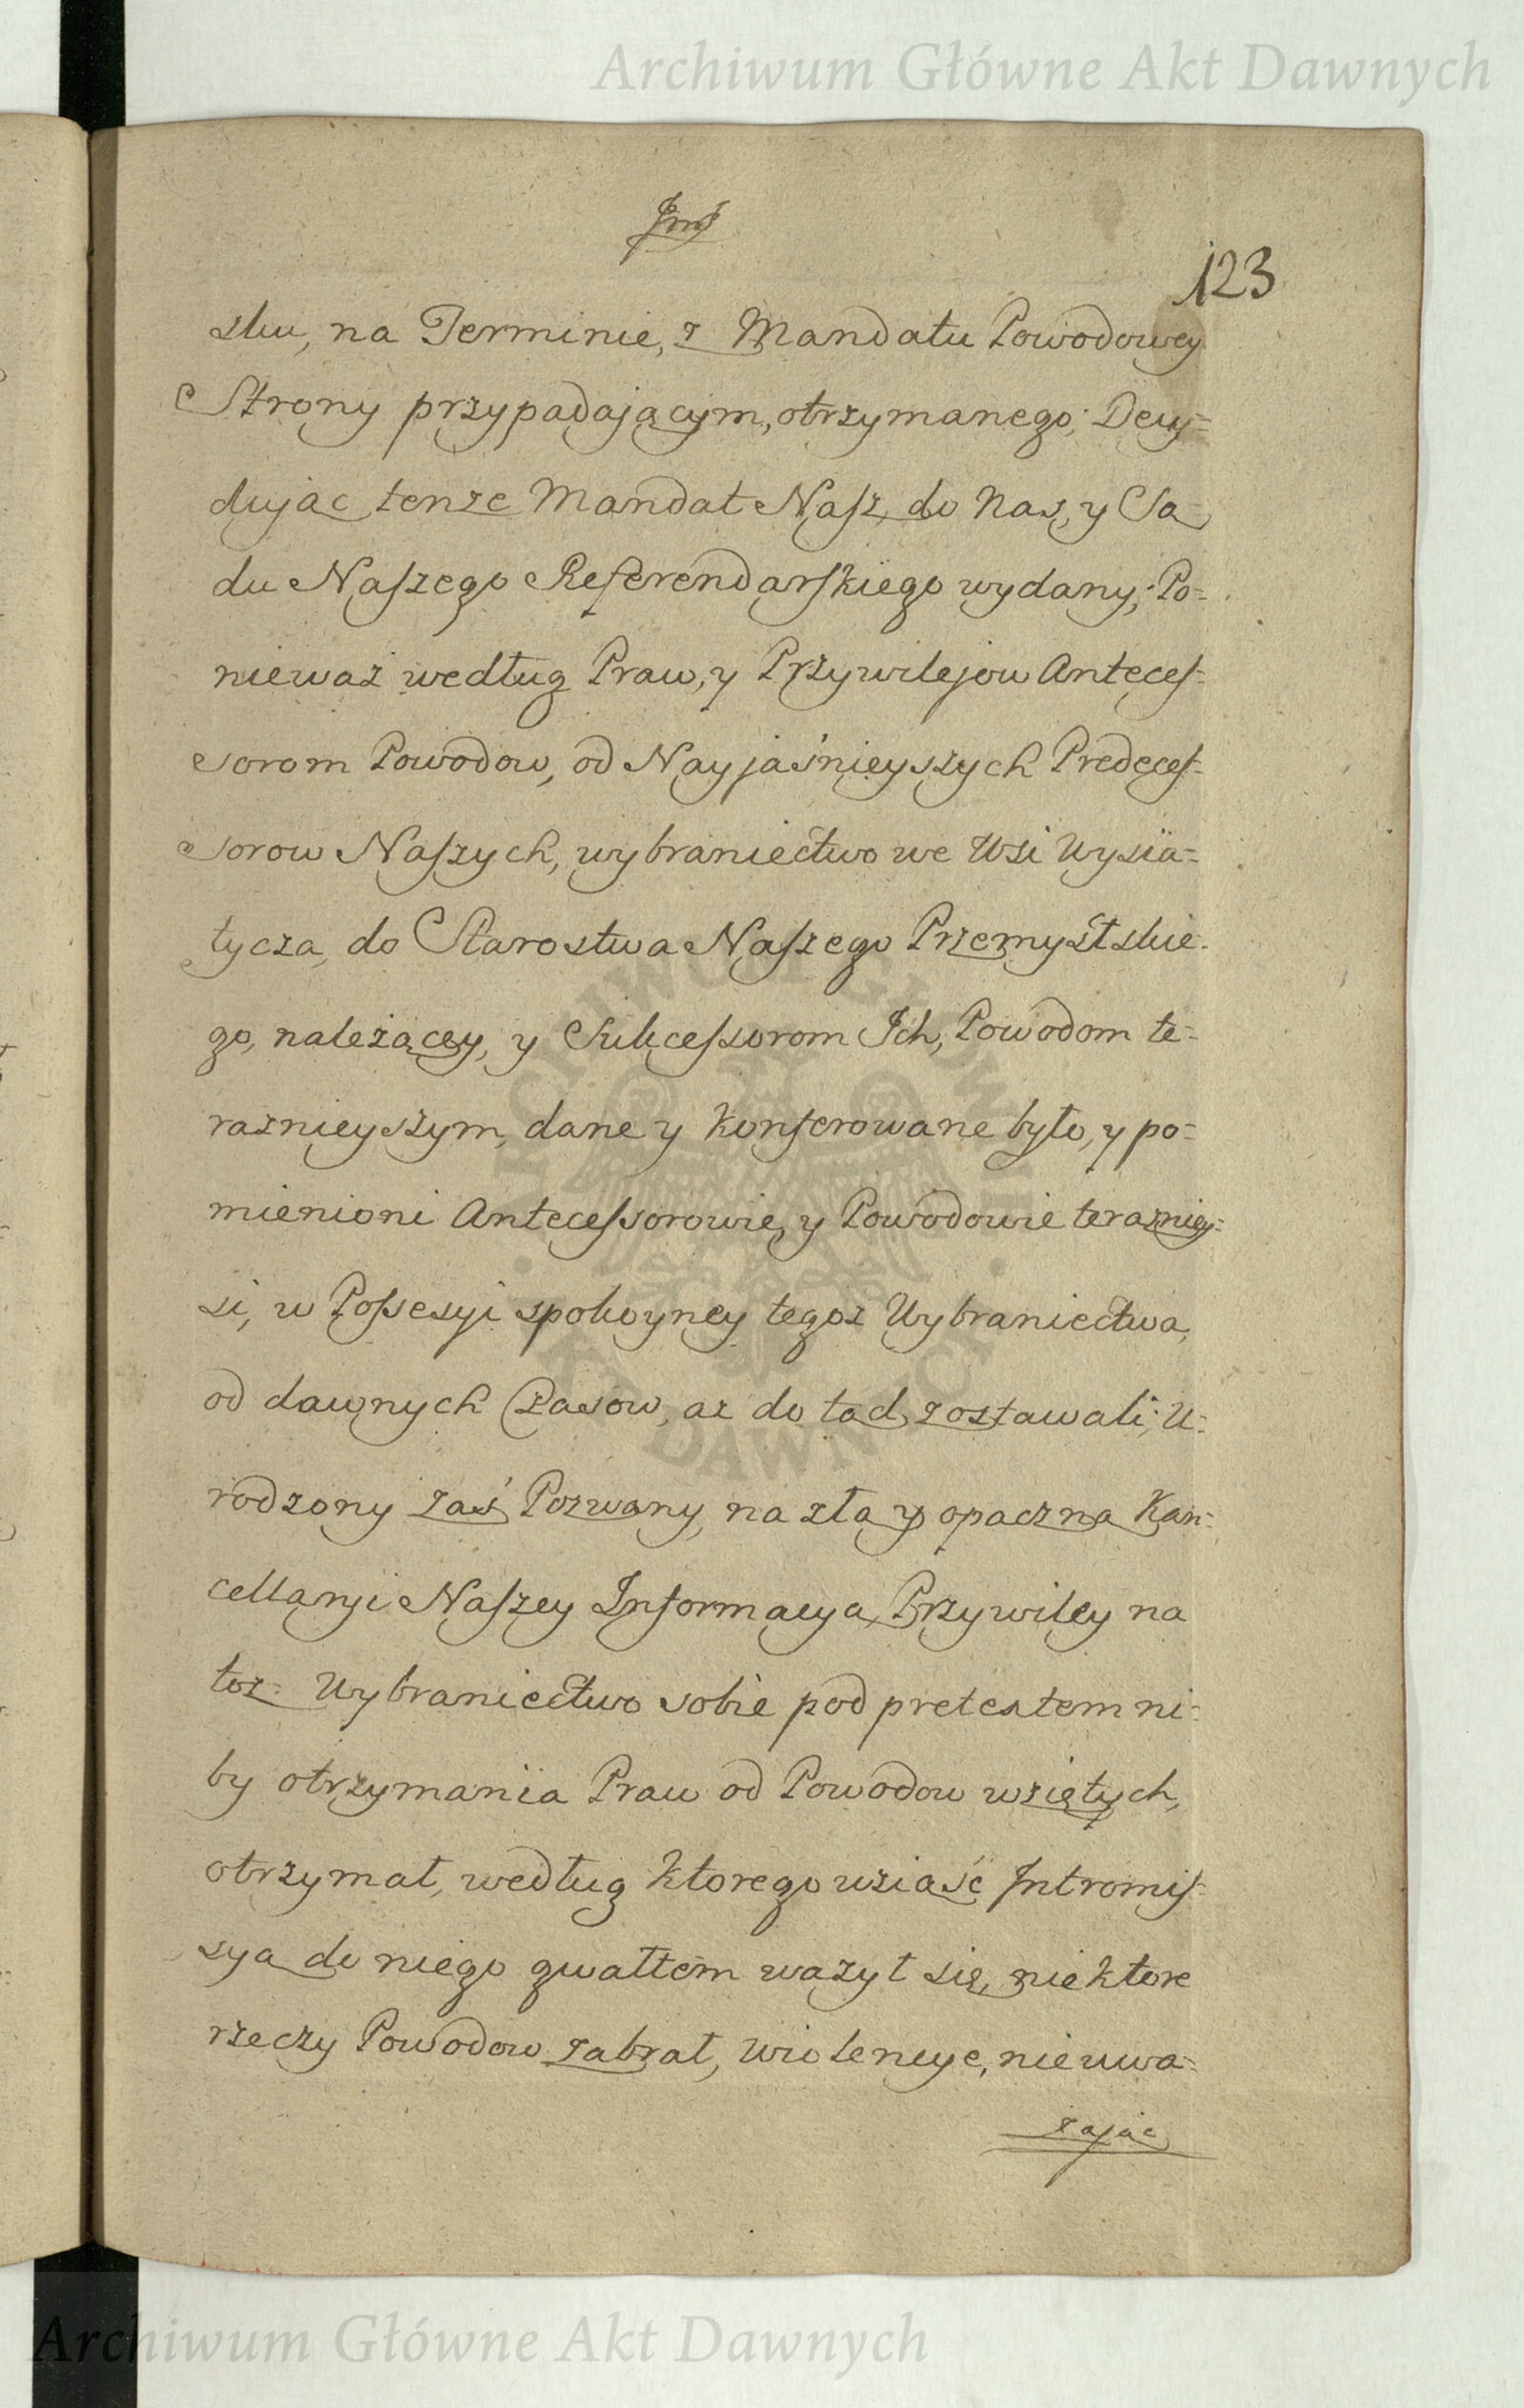 Archiwum Główne Akt Dawnych
123
sku, na Terminie, z Mandatu Powodowey
Strony przypadającym, otrzymanego; Decy=
dując tenże Mandat Nasz, do Nas, y Są=
du Naszego Referendarskiego wydany; Po=
nieważ według Praw, y Przywilejow Anteces=
sorom Powodow, od Nayjaśnieyszych Predeces=
sorow Naszych, wybraniectwo we Wsi Wysia=
tycza, do Starostwa Naszego Przemyślskie=
go, należącey, y Sukcessorom Ich, Powodom te=
raznieyszym, dane y konferowane było, y po=
mienioni Antecessorowie, y Powodowie terazniey=
si, w Possesyi spokoyney tegoz Wybraniectwa,
od dawnych Czasow, az do tąd zostawali; U=
rodzony zaś Pozwany, na złą y opaczną Kan=
cellaryi Naszey Informacyą, Przywiley na
toz Wybraniectwo sobie pod pretextem ni=
by otrzymania Praw od Powodow wziętych,
otrzymał, według ktorego wziąść Intromis=
syą do niego gwałtem ważył się, niektore
rzeczy Powodow zabrał, wiolencye, nieuwa=
żając
ARCHIWUM GŁÓWNE AKT DAWNYCH
Archiwum Główne Akt Dawnych